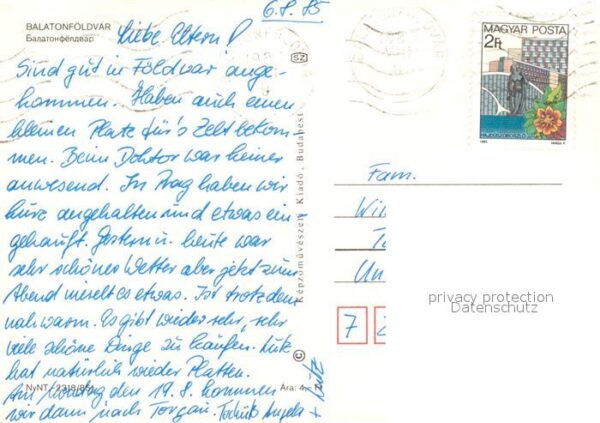 6.8.85
BALATONFÖLDVÁR
Балатонфёлдвар
Liebe Eltern!
Sind gut in Földvar ange-
kommen. Haben auch einen
kleinen Platz für's Zelt bekom-
men. Beim Doktor war keiner
anwesend. In Prag haben wir
kurz angehalten und etwas ein-
gekauft. Gestern u. heute war
sehr schönes Wetter aber jetzt zum
Abend nieselt es etwas. Ist trotzdem
noch warm. Es gibt wieder sehr, sehr
viele schöne Dinge zu kaufen. Lutz
hat natürlich wieder Platten.
Am Montag den 19.8. kommen
wir dann nach Torgau. Tschüß Angela
+ Lutz
NyNT - 2318/851
Ára: 4,- Ft
SZ
Képzőművészeti Kiadó, Budapest
MAGYAR POSTA
2Ft
Fam.
Wi
To
Un
7 2
privacy protection
Datenschutz